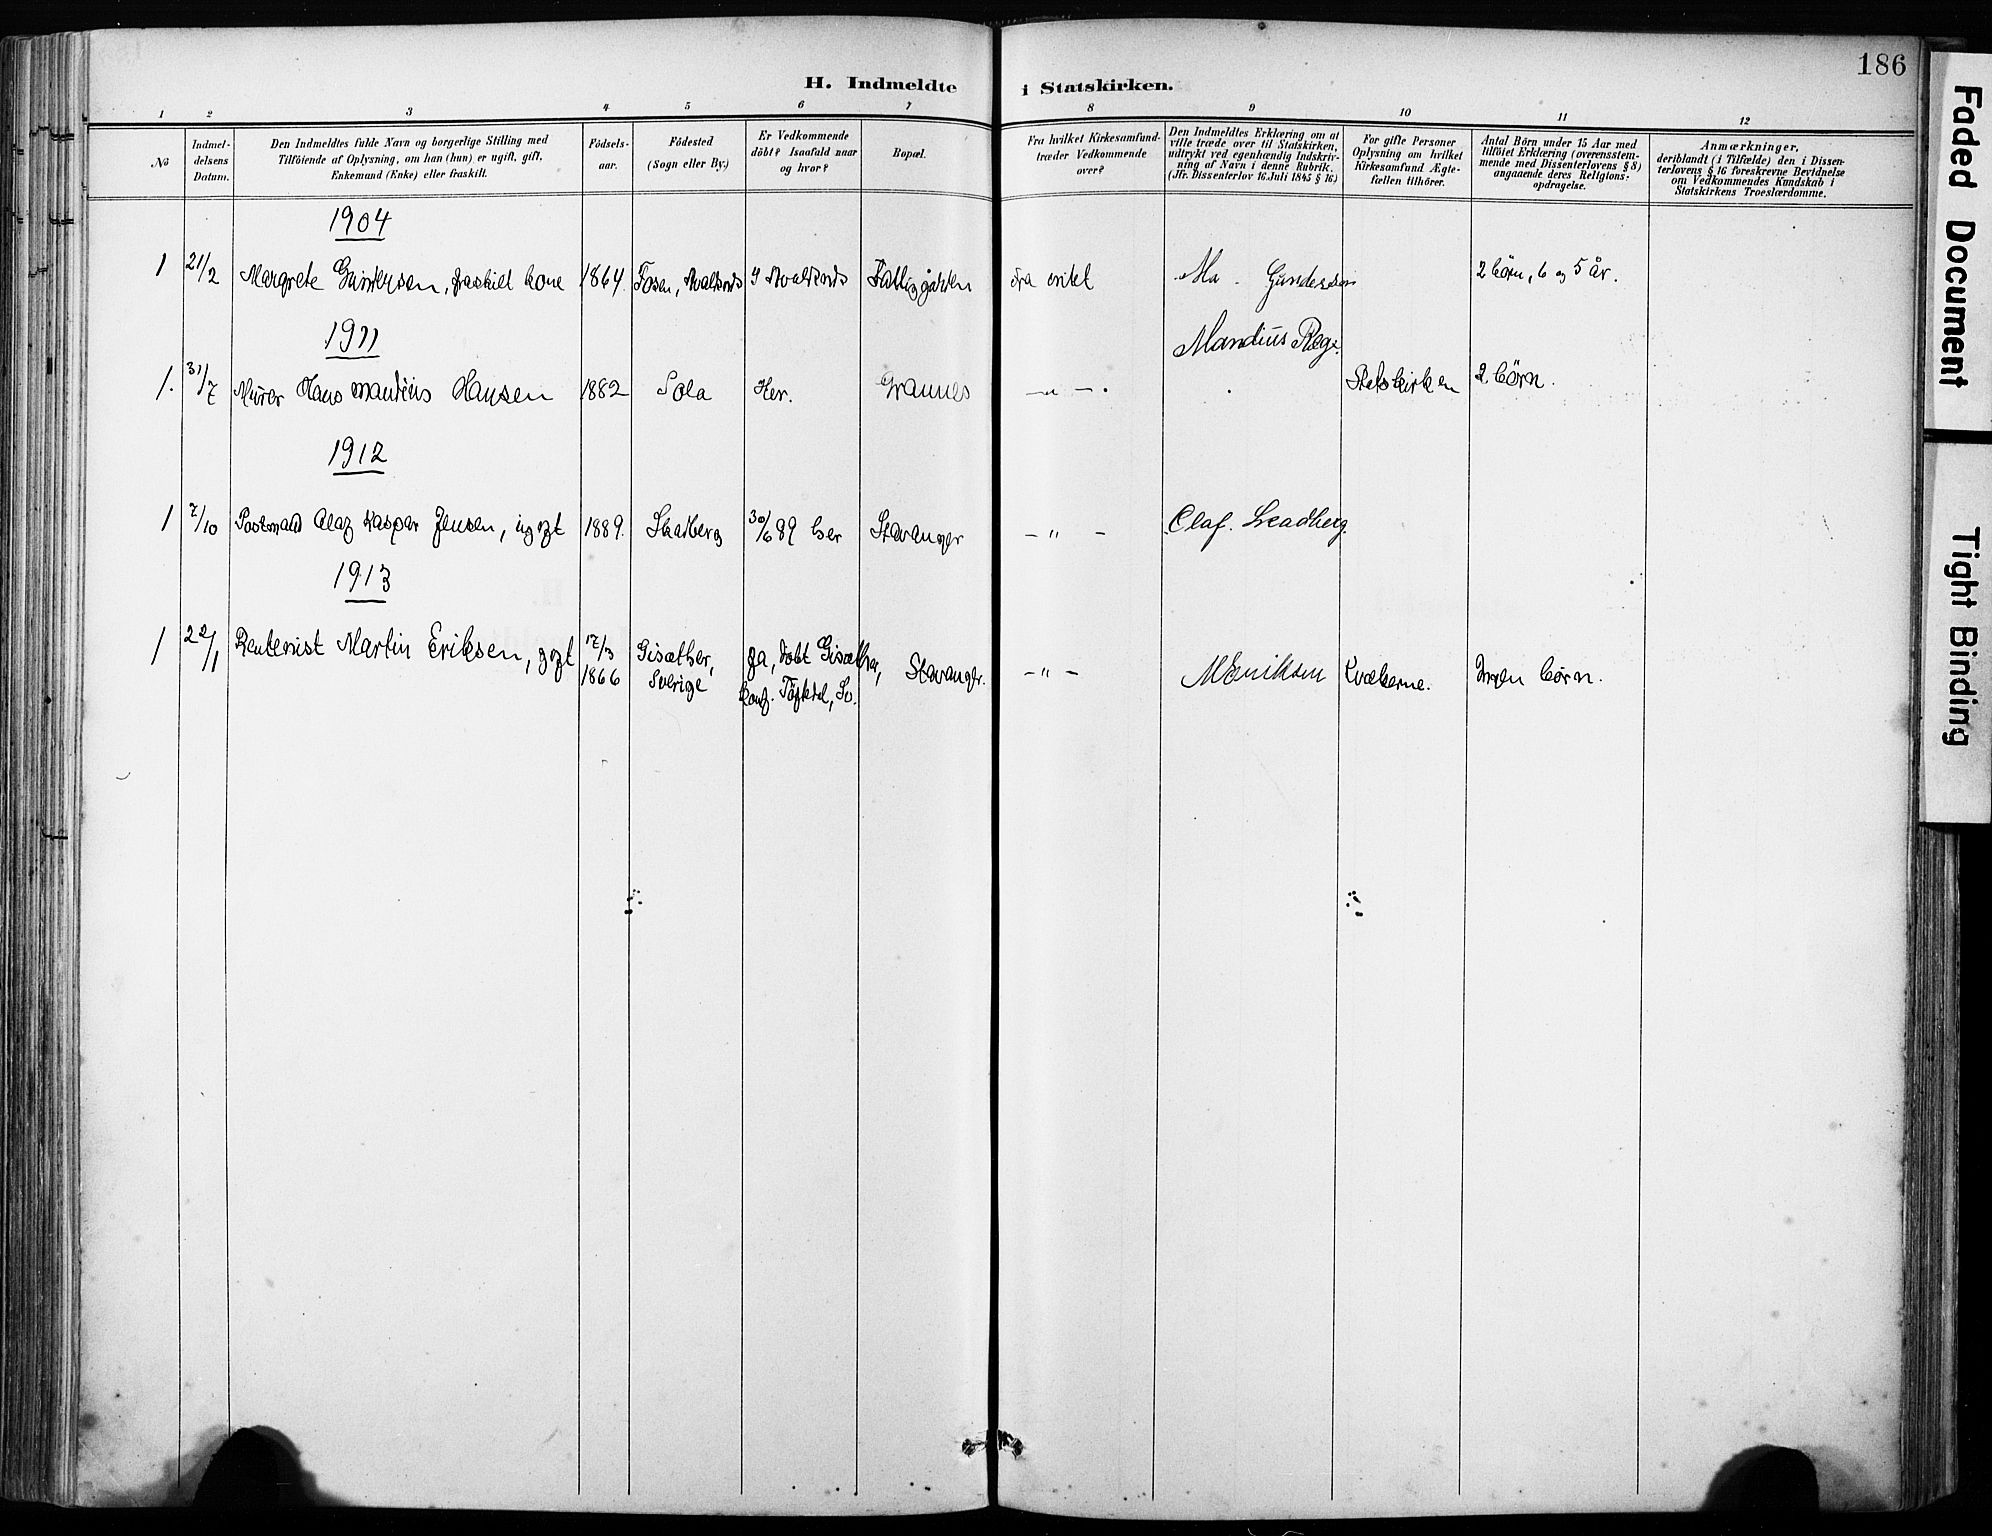 186
H. Indmeldte i Statskirken.
1 2 3 4 5 6 7 8 9 10 11 12
No
Indmeldelsens Datum.
Den Indmeldtes fulde Navn og borgerlige Stilling med
Tilföiende af Oplysning, om han (hun) er ugift, gift,
Enkemand (Enke) eller fraskilt.
Födsels-
aar.
Födested
(Sogn eller By.)
Er Vedkommende
döbt? Isaafald naar
og hvor?
Bopæl.
Fra hvilket Kirkesamfund
træder Vedkommende
over?
Den Indmeldtes Erklæring om at
ville træde over til Statskirken,
udtrykt ved egenhændig Indskriv-
ning af Navn i denne Rubrik.
(Jfr. Dissenterlov 16. Juli 1845 § 16.)
For gifte Personer
Oplysning om hvilket
Kirkesamfund Ægte-
fællen tilhörer.
Antal Börn under 15 Aar med
tilföiet Erklæring (overensstem-
mende med Dissenterlovens § 8)
angaaende deres Religions-
opdragelse.
Anmærkninger,
deriblandt (i Tilfælde) den i Dissen-
terlovens § 16 foreskrevne Bevidnelse
om Vedkommendes Kundskab i
Statskirkens Troeslærdomme.
1904
1 21/2 Margrete Gundersen, fraskilt kone 1864. Fosen, Avaldsnes I Avaldsnes Fattiggården fra intet Ma. Gundersen 2 børn, 6 og 5 år.
1911
Mandius Rege.
1. 31/7 Murer Hans Mandius Hansen 1882 Sola Her. Grannes — " — . Statskirken 2 børn.
1912
1 7/10 Postmand Olaf Kaspar Jensen, ugift 1889. Skadberg 30/6 89 her Stavanger — " — Olaf. Skadberg.
1913
1 22/1 Rentenist Martin Eriksen, gift 17/3 1866 Gisæther, Sverige Ja, døbt Gisæther, konf. Töftedal, Sv. Stavanger. — " — M Eriksen Kvækerne. Ingen børn.
Faded Document
Tight Binding